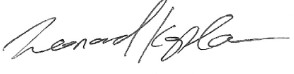 Leonard Kaplan